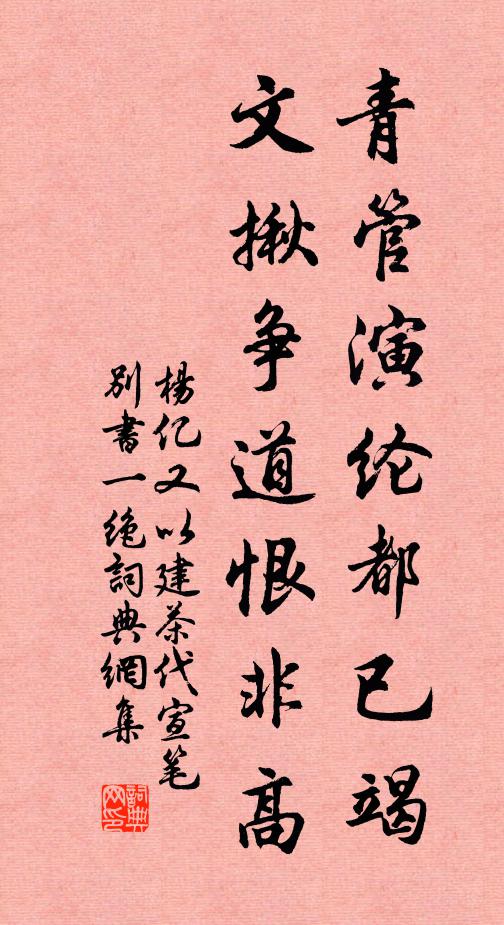 青管演纶都已竭
文揪争道恨非高
楊亿又以建茶代宣笔
别書一绝詞典網集
詞典
网印